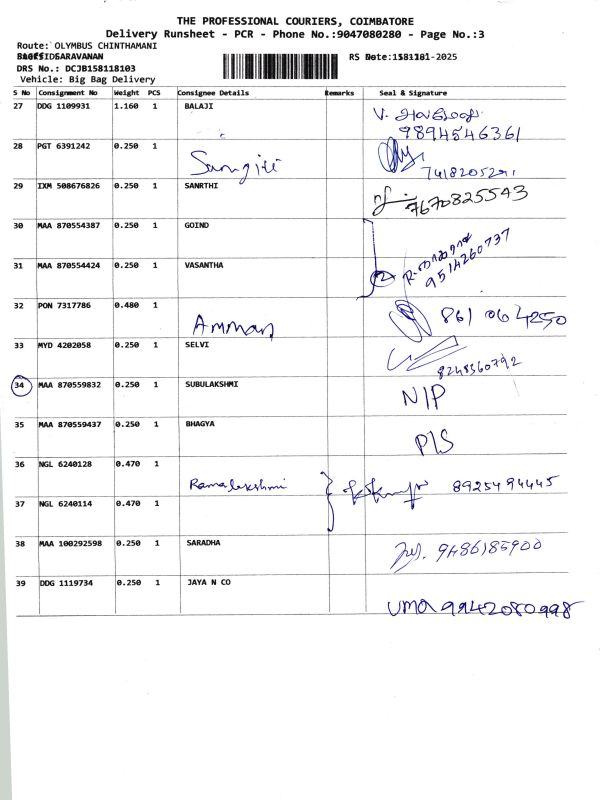 THE PROFESSIONAL COURIERS, COIMBATORE
Delivery Runsheet - PCR - Phone No.:9047080280 - Page No.:3
Route: OLYMBUS CHINTHAMANI
SARAVANAN
DRS No.: DCJB158118103
Vehicle: Big Bag Delivery
S No Consignment No Weight PCS Consignee Details Remarks Seal & Signature
27 DDG 1109931 1.160 1 BALAJI V.
9894546361
28 PGT 6391242 0.250 1
29 IXM 508676826 0.250 1 SANRTHI 7670825543
30 MAA 870554387 0.250 1 GOIND
31 MAA 870554424 0.250 1 VASANTHA 9514260737
32 PON 7317786 0.480 1 Amman 861 064250
33 MYD 4202058 0.250 1 SELVI 8248360792
34 MAA 870559832 0.250 1 SUBULAKSHMI N/P
35 MAA 870559437 0.250 1 BHAGYA P/S
36 NGL 6240128 0.470 1 Ramalakshmi 8925494445
37 NGL 6240114 0.470 1
38 MAA 100292598 0.250 1 SARADHA 9486185900
39 DDG 1119734 0.250 1 JAYA N CO
UMA 9942080998